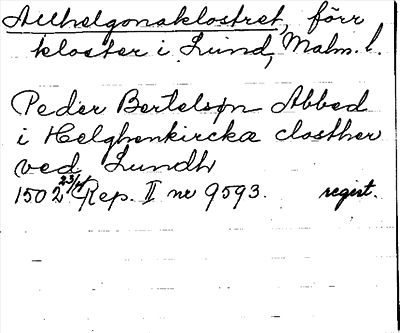 Allhelgonaklostret, förr
kloster i Lund, Malm. l.
Peder Bertelsøn Abbed
i Helghenkircka closther
ved Lundh
1502 23/4 Rep. II nr 9593. regist.